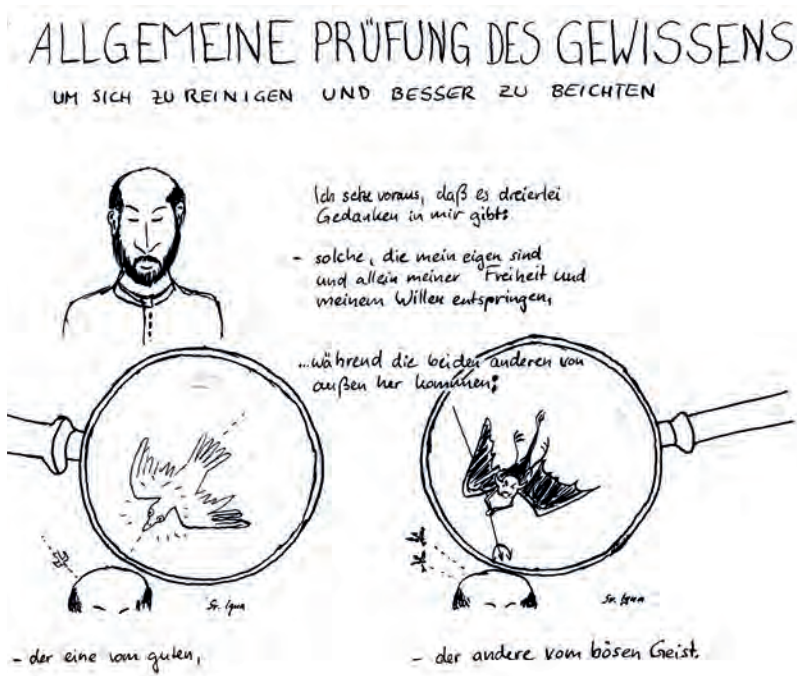 ALLGEMEINE PRÜFUNG DES GEWISSENS
UM SICH ZU REINIGEN UND BESSER ZU BEICHTEN
Ich setze voraus, daß es dreierlei
Gedanken in mir gibt:
- solche, die mein eigen sind
und allein meiner Freiheit und
meinem Willen entspringen,
...während die beiden anderen von
außen her kommen:
- der eine vom guten,
- der andere vom bösen Geist.